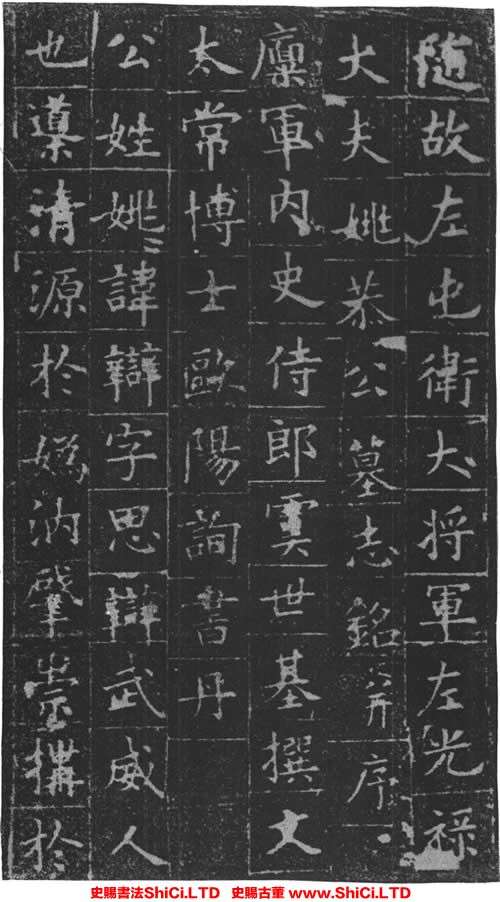 随故左屯衛大将軍左光禄
大夫姚恭公墓志銘并序
内史侍郎虞世基撰文
太常博士歐陽詢書丹
公姓姚諱辯字思辯武威人
也導清源於嬀汭肇崇構於
史賜書法ShiCi.LTD 史賜古董 www.ShiCi.LTD